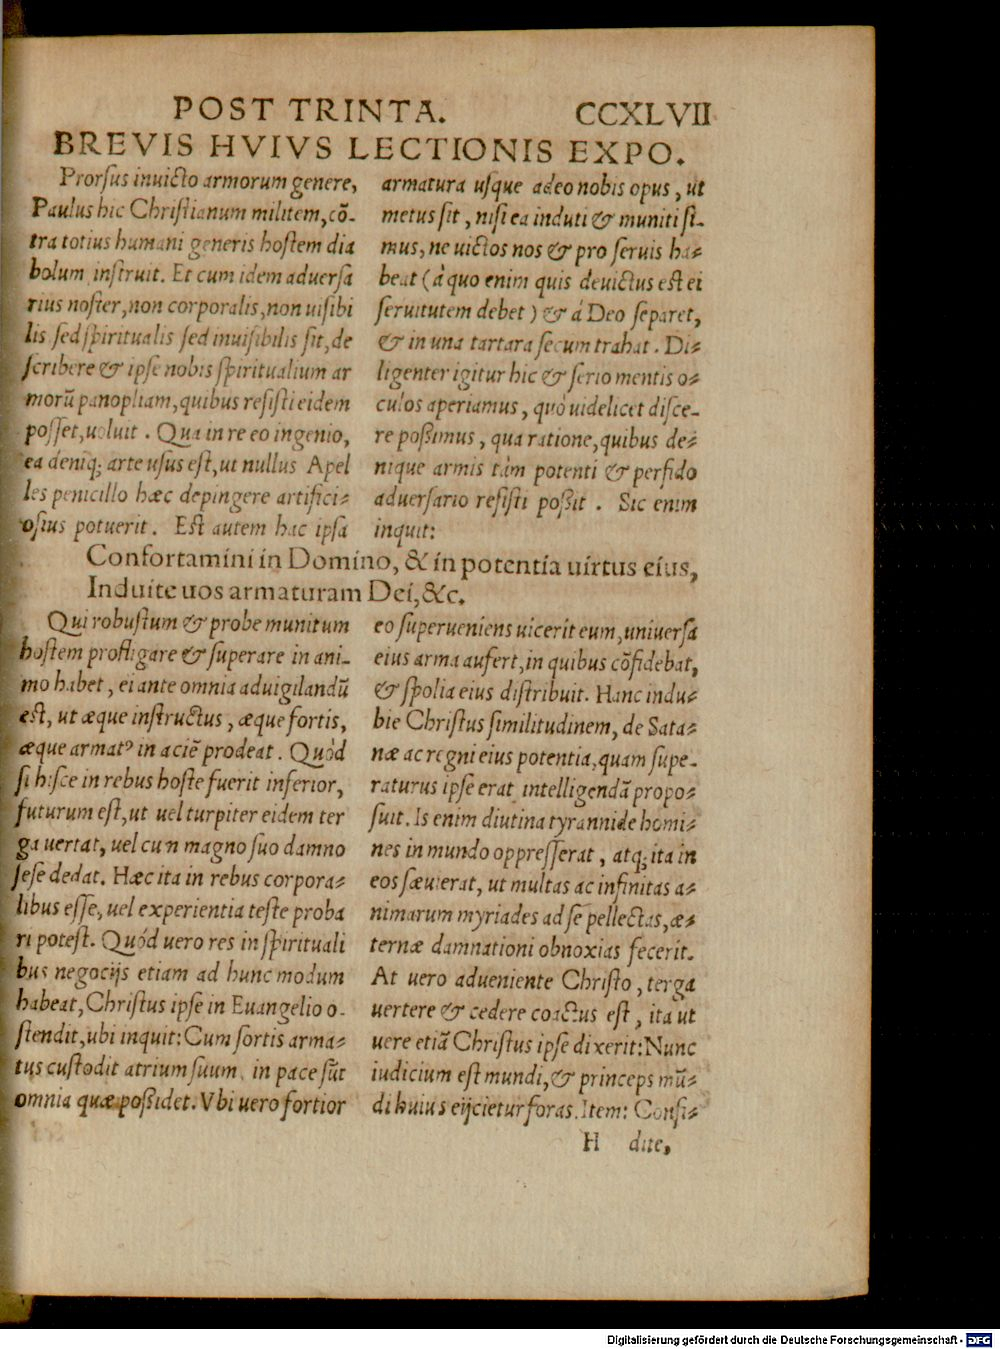 POST TRINTA. CCXLVII
BREVIS HVIVS LECTIONIS EXPO.
Prorsus inuicto armorum genere,
Paulus hic Christianum militem, cõ-
tra totius humani generis hostem dia
bolum instruit. Et cum idem aduersa
rius noster, non corporalis, non uisibi
lis sed spiritualis sed inuisibilis sit, de
scribere & ipse nobis spiritualium ar
morũ panopliam, quibus resisti eidem
posset, uoluit. Qua in re eo ingenio,
ea deniq; arte usus est, ut nullus Apel
les penicillo hæc depingere artifici-
osius potuerit. Est autem hac ipsa
armatura usque adeo nobis opus, ut
metus sit, nisi ea induti & muniti si-
mus, ne uictos nos & pro seruis ha-
beat (à quo enim quis deuictus est ei
seruitutem debet) & á Deo separet,
& in una tartara secum trahat. Di-
ligenter igitur hic & serio mentis o-
culos aperiamus, quò uidelicet disce-
re possimus, qua ratione, quibus de-
nique armis tàm potenti & perfido
aduersario resisti possit. Sic enim
inquit:
Confortamini in Domino, & in potentia uirtus eius,
Induite uos armaturam Dei, &c.
Qui robustum & probe munitum
hostem profligare & superare in ani-
mo habet, ei ante omnia aduigilandũ
est, ut æque instructus, æque fortis,
æque armatꝰ in aciẽ prodeat. Quòd
si hisce in rebus hoste fuerit inferior,
futurum est, ut uel turpiter eidem ter
ga uertat, uel cum magno suo damno
sese dedat. Hæc ita in rebus corpora-
libus esse, uel experientia teste proba
ri potest. Quód uero res in spirituali
bus negocijs etiam ad hunc modum
habeat, Christus ipse in Euangelio o-
stendit, ubi inquit: Cum fortis arma-
tus custodit atrium suum, in pace sũt
omnia quæ possidet. Vbi uero fortior
eo superueniens uicerit eum, uniuersa
eius arma aufert, in quibus cõfidebat,
& spolia eius distribuit. Hanc indu-
bie Christus similitudinem, de Sata-
næ ac regni eius potentia, quam supe-
raturus ipse erat intelligendã propo-
suit. Is enim diutina tyrannide homi-
nes in mundo oppresserat, atq; ita in
eos sæuierat, ut multas ac infinitas a-
nimarum myriades ad se pellectas, æ-
ternæ damnationi obnoxias fecerit.
At uero adueniente Christo, terga
uertere & cedere coactus est, ita ut
uere etiã Christus ipse dixerit: Nunc
iudicium est mundi, & princeps mũ-
di huius eijcietur foras. Item: Confi-
H dite,
Digitalisierung gefördert durch die Deutsche Forschungsgemeinschaft - DFG